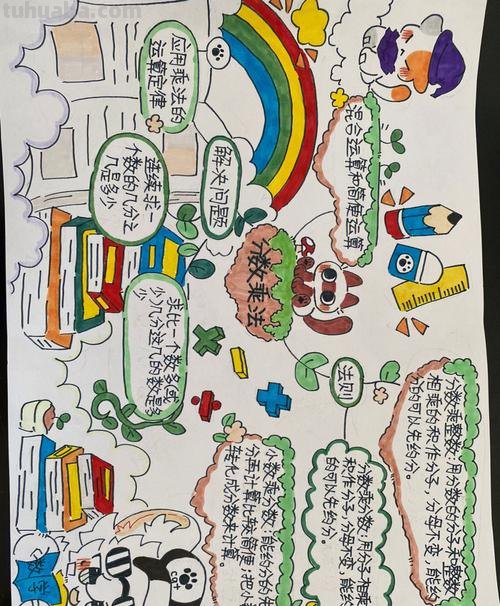 tuhuaba.com
混合运算和简便运算
应用乘法的
运算定律
解决问题
连续求一
个数的几分之
几是多少
分数乘法
求比一个数多或
少几分这几的数是多
少
法则
分数乘整数:用分数的分子和整数
相乘的积作分子,分母不变,能约
分的可以先约分。
分数乘分数:用分子相乘
积作分子,分母不变,能约
的可以先约分。
小数乘分数:能约分的先
分再计算比较简便,把小
转化成分数来计算。
数学